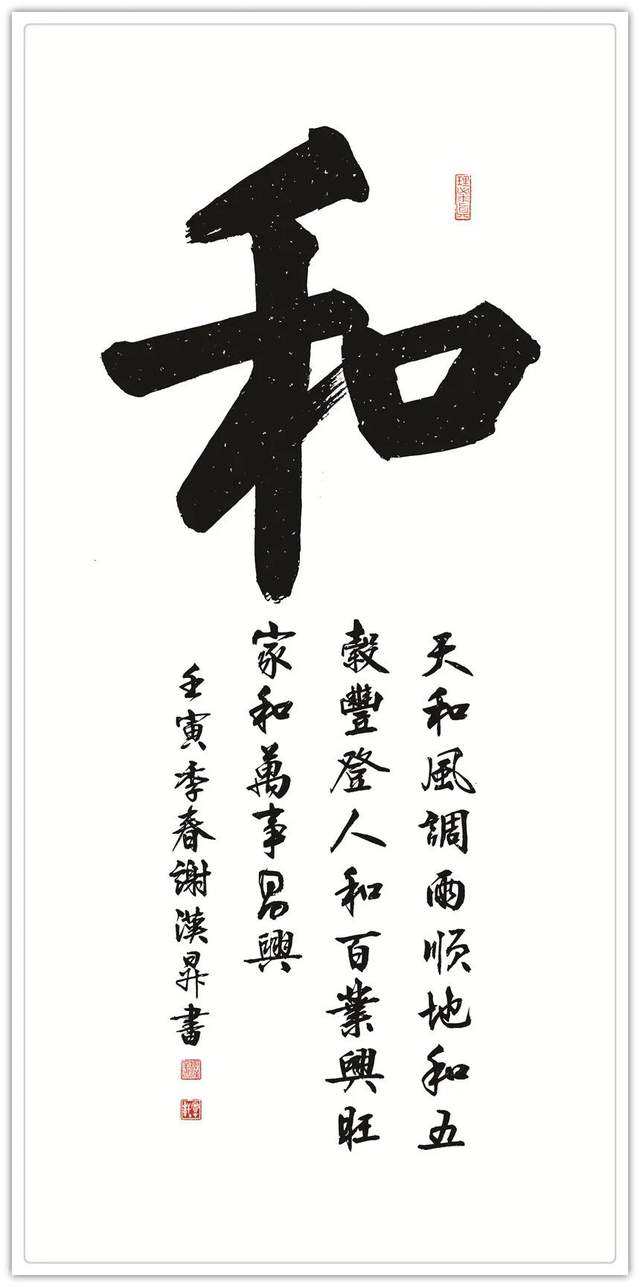 和
天和風調雨順地和五
穀豐登人和百業興旺
家和萬事易興
壬寅季春謝漢昇書